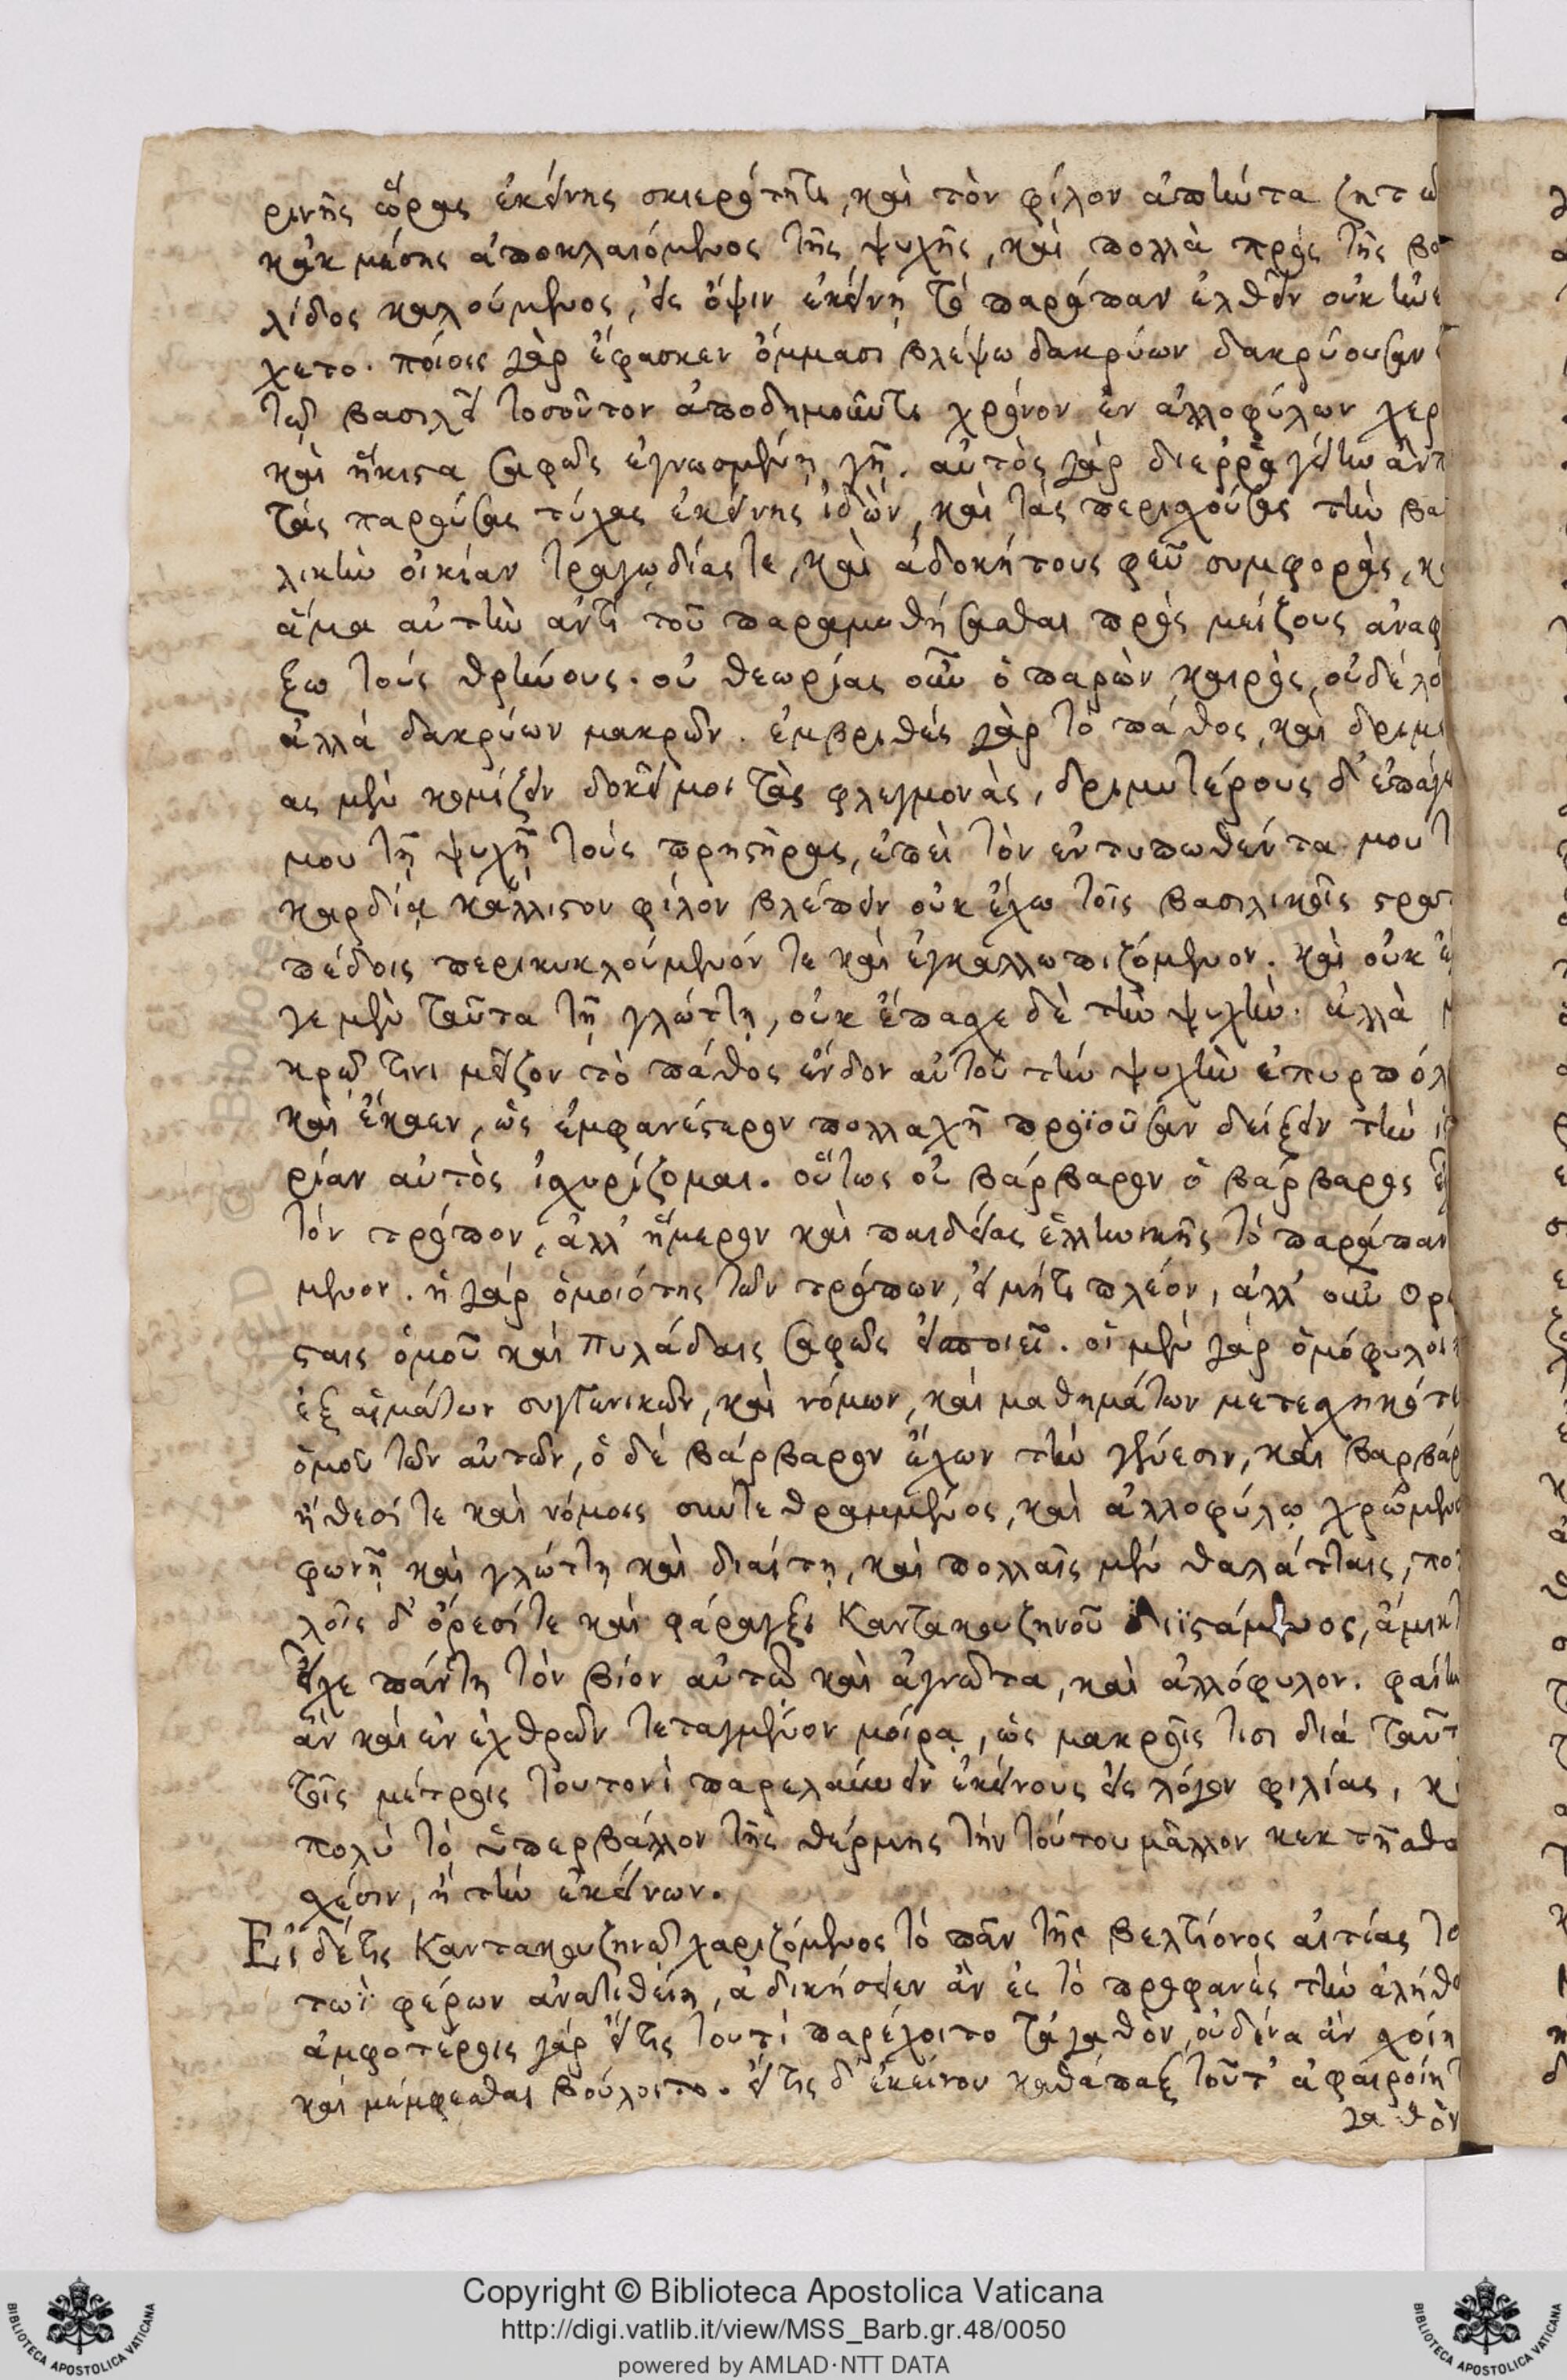 ρινῆς ὥρας ἐκείνης σκιερότητι, καὶ τὸν φίλον ἀπιόντα ζητῶ
κἀκ μέσης ἀποκλαιόμενος τῆς ψυχῆς, καὶ πολλὰ πρὸς τῆς βα
λίδος καλούμενος, εἰς ὄψιν ἐκείνῃ τὸ παράπαν ἐλθεῖν οὐκ ἠνε
χετο. ποίοις γὰρ ἔφασκεν ὄμμασι βλέψω δακρύων δακρύουσαν
τῷ βασιλεῖ τοσοῦτον ἀποδημοῦντι χρόνον ἐν ἀλλοφύλων χερ
καὶ ἥκιστα σαφῶς ἐγνωσμένῃ γῇ. αὐτὸς γὰρ διερραγείην ἂν
τὰς παρούσας τύχας ἐκείνης ἰδών, καὶ τὰς περισχούσας τὴν βα
λικὴν οἰκίαν τραγῳδίας τε, καὶ ἀδοκήτους φεῦ συμφορὰς, κ
ἅμα αὐτὴν ἀντὶ τοῦ παραμυθήσασθαι πρὸς μείζους ἀναφ
ξω τοὺς θρήνους. οὐ θεωρίας οὖν ὁ παρὼν καιρὸς, οὐδὲ λό
ἀλλὰ δακρύων μακρῶν. ἐμβριθὲς γὰρ τὸ πάθος, καὶ δριμεί
ας μὲν κομίζειν δοκεῖ μοι τὰς φλεγμονὰς, δριμυτέρους δ' ἐπάγε
μου τῇ ψυχῇ τοὺς πρηστῆρας, ἐπεὶ τὸν ἐντυπωθέντα μου τ
καρδίᾳ κάλλιστον φίλον βλέπειν οὐκ ἔχω τοῖς βασιλικοῖς στρατ
πέδοις περικυκλούμενόν τε καὶ ἐγκαλλωπιζόμενον. καὶ οὐκ ἔ
γε μὲν ταῦτα τῇ γλώττῃ, οὐκ ἔπασχε δὲ τὴν ψυχήν. ἀλλὰ μ
κρῷ τινι μεῖζον τὸ πάθος ἔνδον αὐτοῦ τὴν ψυχὴν ἐπυρπόλ
καὶ ἔκαεν, ὡς ἐμφανέστερον πολλαχῆ προϊοῦσαν δείξειν τὴν ἱ
ρίαν αὐτὸς ἰσχυρίζομαι. οὕτως οὐ βάρβαρον ὁ βάρβαρος εἶ
τὸν τρόπον, ἀλλ' ἥμερον καὶ παιδείας ἑλληνικῆς τὸ παράπαν
μενον. ἡ γὰρ ὁμοιότης τῶν τρόπων, εἰ μήτι πλέον, ἀλλ' οὖν Ορέ
σταις ὁμοῦ καὶ Πυλάδαις σαφῶς εἰσποιεῖ. οἱ μὲν γὰρ ὁμόφυλοι
ἐξ αἱμάτων συγγενικῶν, καὶ νόμων, καὶ μαθημάτων μετεσχηκότε
ὁμοῦ τῶν αὐτῶν, ὁ δὲ βάρβαρον ἔχων τὴν γένεσιν, καὶ βαρβάρ
ἤθεσί τε καὶ νόμοις συντεθραμμένος, καὶ ἀλλοφύλῳ χρώμενο
φωνῇ καὶ γλώττῃ καὶ διαίτῃ, καὶ πολλαῖς μὲν θαλάτταις, πολ
λοῖς δ' ὄρεσί τε καὶ φάραγξι Καντακουζηνοῦ διϊστάμενος, ἄμικτ
εἶχε πάντη τὸν βίον αὐτῷ καὶ ἀγνῶτα, καὶ ἀλλόφυλον. φαίην
ἂν καὶ ἐν ἐχθρῶν τεταγμένον μοίρᾳ, ὡς μακροῖς τισι διὰ ταῦτ
τοῖς μέτροις τουτονὶ παρελαύνειν ἐκείνους εἰς λόγον φιλίας, κ
πολὺ τὸ ὑπερβάλλον τῆς θέρμης τὴν τούτου μᾶλλον κεκτῆσθα
σχέσιν, ἢ τὴν ἐκείνων.
Εἰ δέ τις Καντακουζηνῷ χαριζόμενος τὸ πᾶν τῆς βελτίονος αἰτίας το
τωῒ φέρων ἀνατιθείη, ἀδικήσειεν ἂν ἐς τὸ προφανὲς τὴν ἀλήθ
ἀμφοτέροις γὰρ εἴ τις τουτὶ παρέχοιτο τἀγαθὸν, οὐδένα ἂν σχοίη
καὶ μέμφεσθαι βούλοιτο. εἴ τις δ' ἐκείνου καθάπαξ τοῦτ' ἀφαιροίη
γαθὸν
Copyright © Biblioteca Apostolica Vaticana
http://digi.vatlib.it/view/MSS_Barb.gr.48/0050
powered by AMLAD·NTT DATA